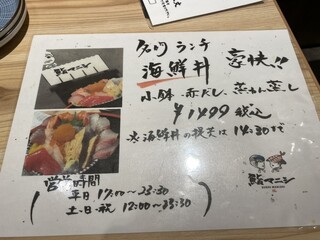 名物ランチ
海鮮丼 豪快!!
小鉢・赤だし・茶わん蒸し
¥1499 税込
※海鮮丼の提供は14:30まで
鮨マニシ
営業時間
平日 17:00〜23:30
土・日・祝 12:00〜23:30
鮨マニシ